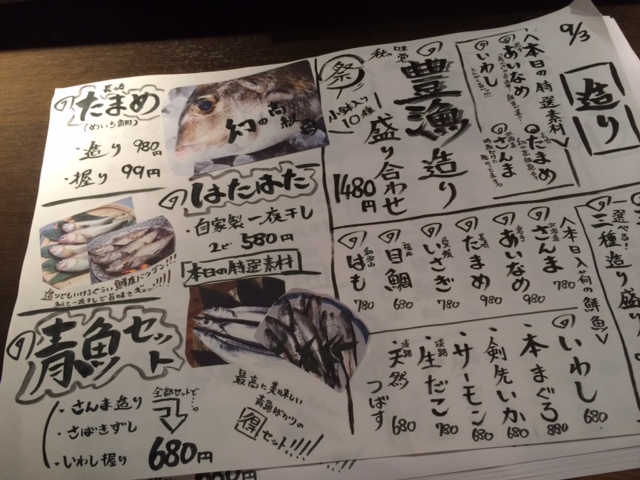 9/3
造り
〈本日の特選素材〉
あいなめ
いわし
たまめ
さんま
豊漁造り
盛り合わせ
祭
小鉢入り
10種
1480円
選べる!
三種造り盛り
〈本日入荷の鮮魚〉
さんま 780
あいなめ 980
長崎 たまめ 980
愛媛 いさぎ 780
目鯛 680
和歌山 はも 780
いわし 680
本まぐろ 880
剣先いか 680
サーモン 680
淡路 生だこ 780
淡路 天然つばす 680
長崎
たまめ
(めいち鯛)
・造り 980円
・握り 99円
幻の高級魚
はたはた
・自家製一夜干し
2ビ 580円
本日の特選素材
青魚セット
・さんま造り
・さばきずし
・いわし握り
全部セットで…。
680円
最高に美味しい
青魚ばかりの
得セット!!!!